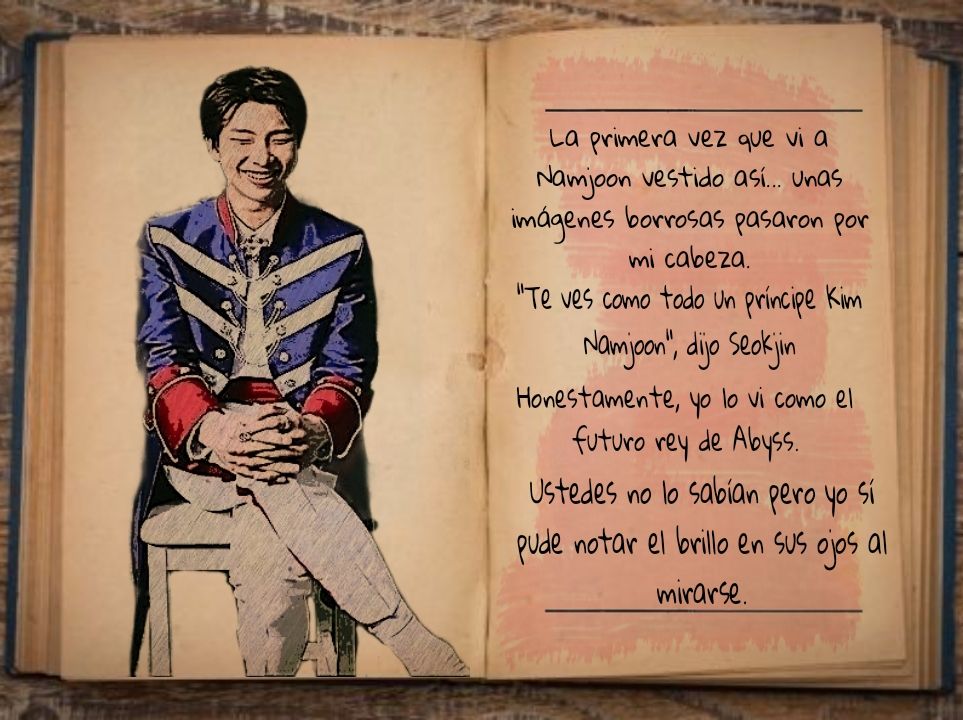 La primera vez que vi a
Namjoon vestido así... unas
imágenes borrosas pasaron por
mi cabeza.
"Te ves como todo un príncipe Kim
Namjoon", dijo Seokjin
Honestamente, yo lo vi como el
futuro rey de Abyss.
Ustedes no lo sabían pero yo sí
pude notar el brillo en sus ojos al
mirarse.